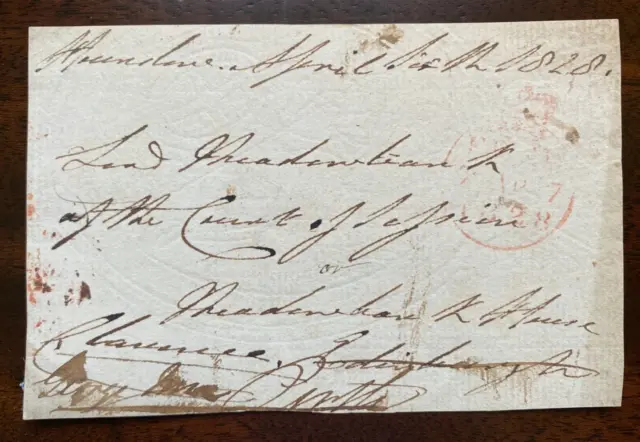 Hounslow April sixth 1828.
Lord Meadowbank
at the Court of Session
or
Meadowbank House
Clarence
7
28